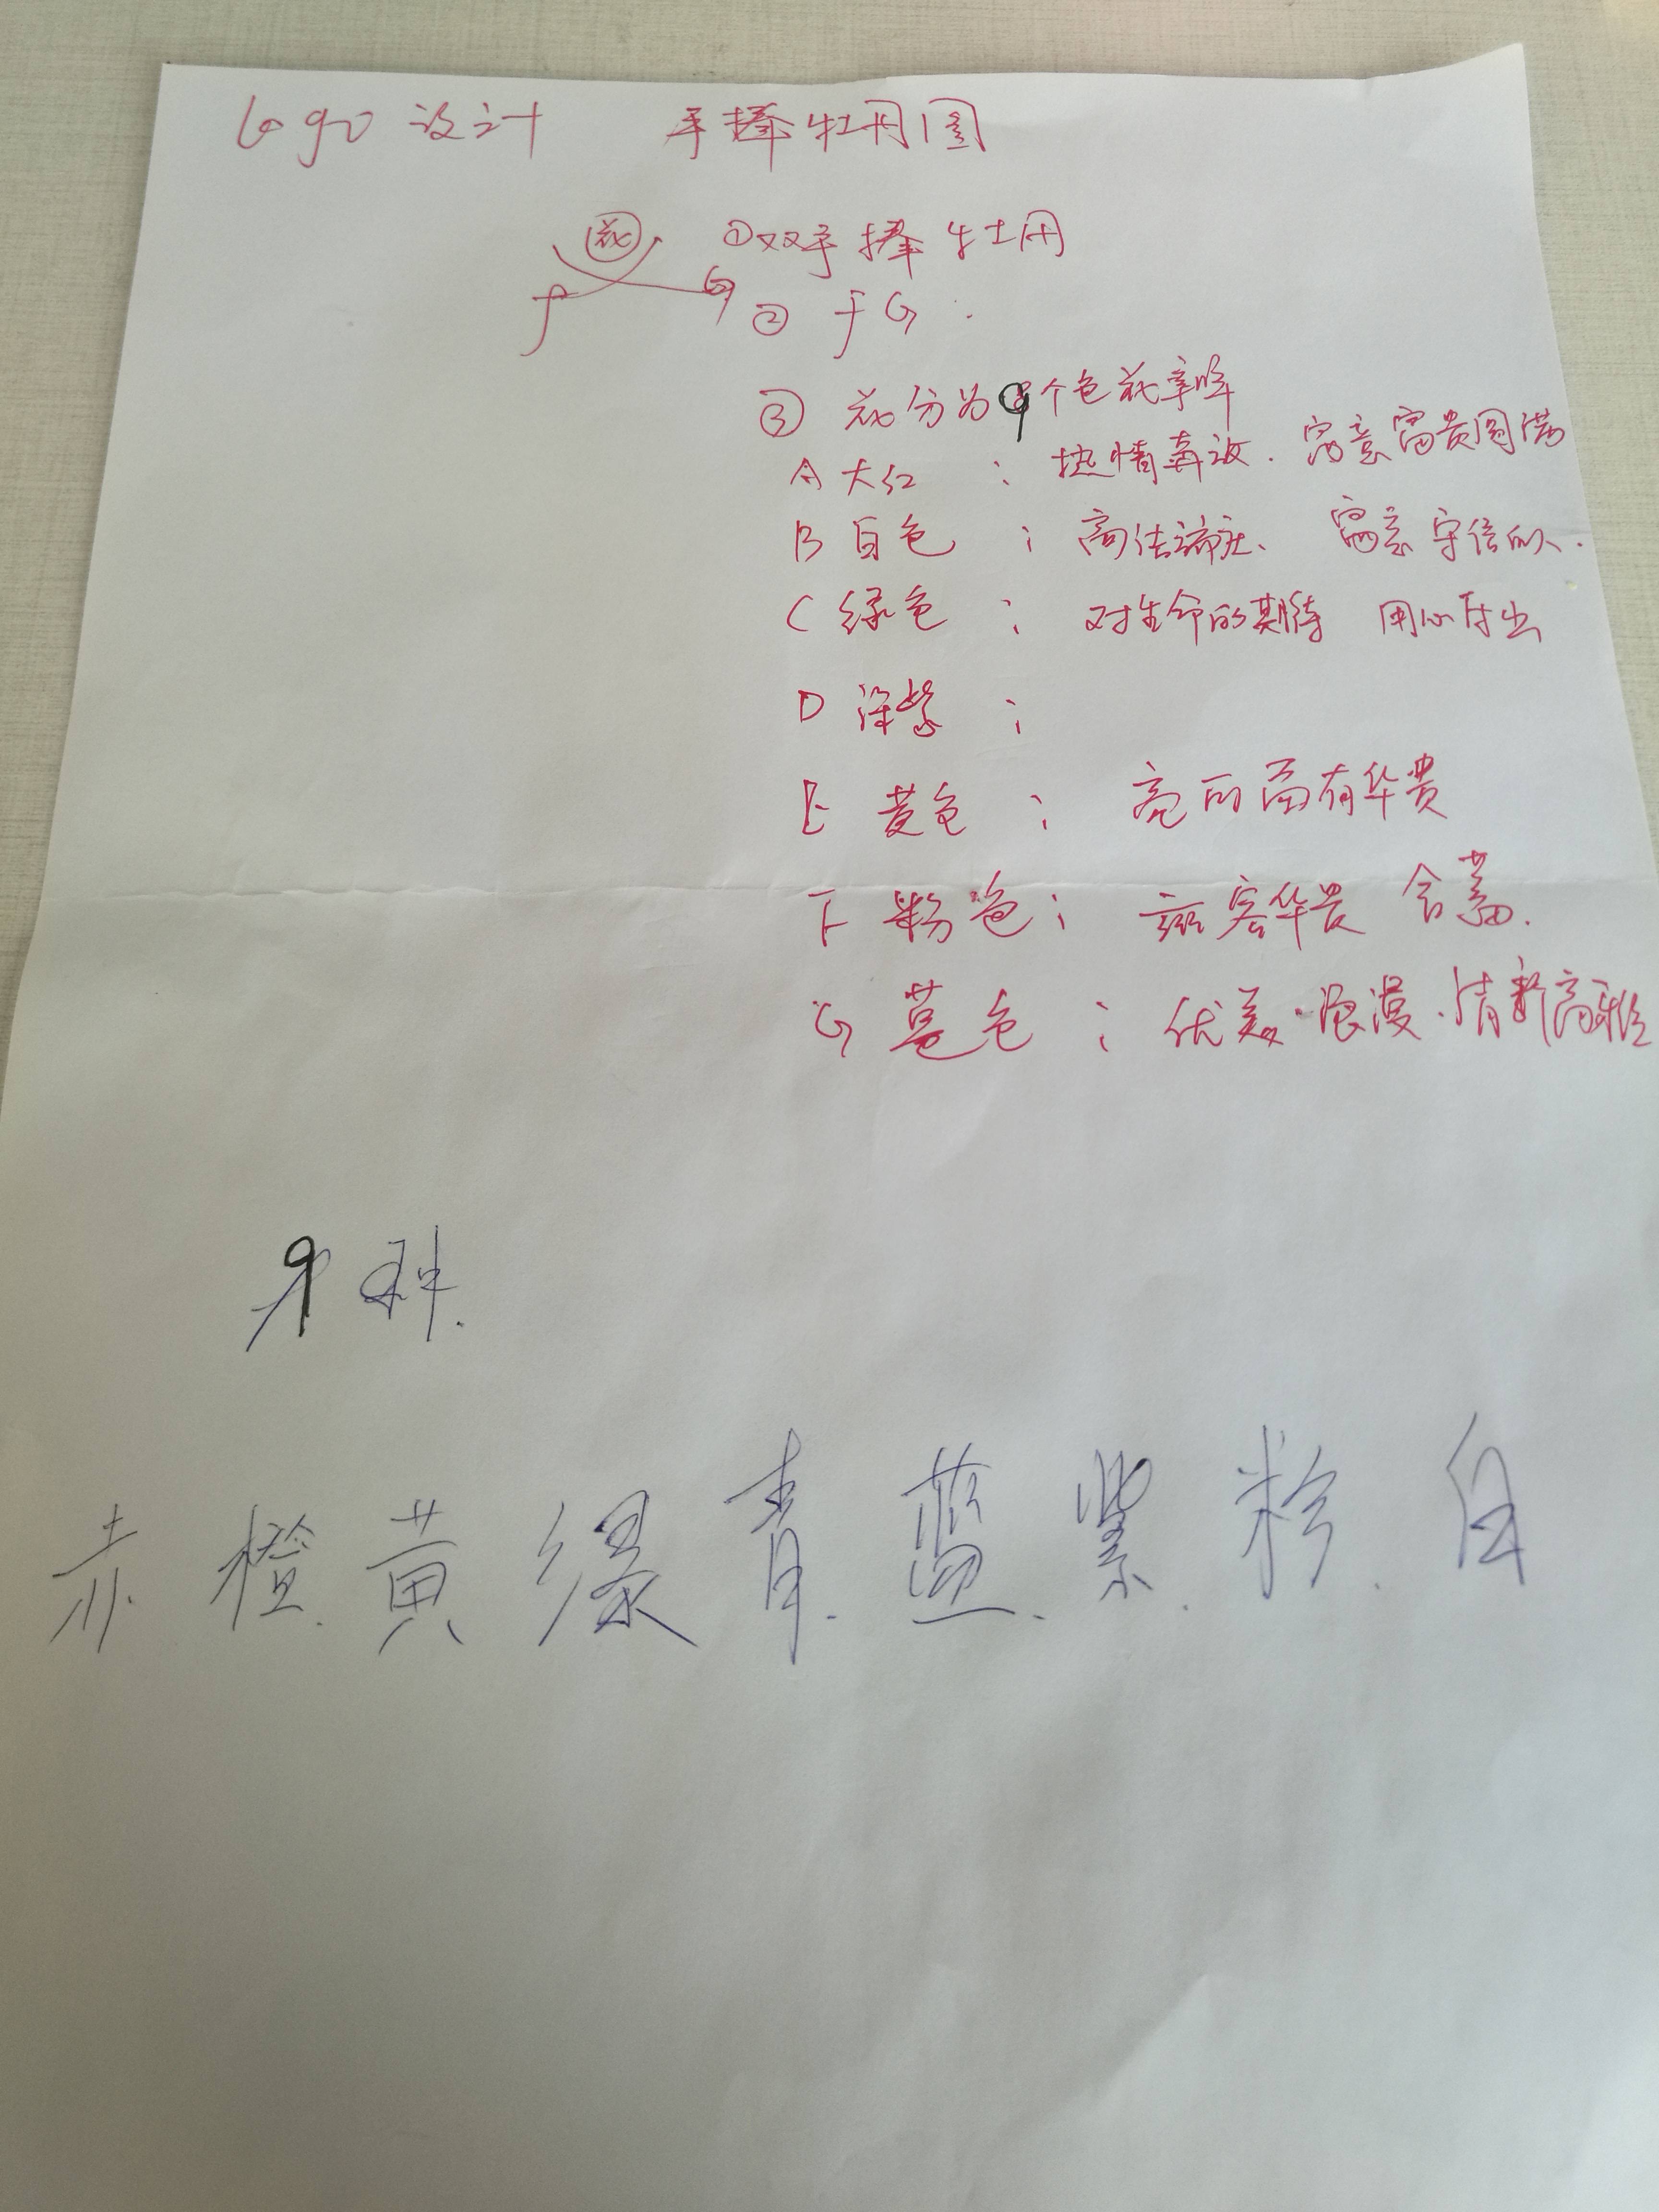 logo 设计 手捧牡丹图
花 ①双手捧牡丹
f G ② f G.
③ 花分为9个色花瓣
A 大红 : 热情奔放. 寓意富贵圆满
B 白色 ; 高洁端庄、寓意守信的人.
C 绿色 ; 对生命的期待 用心付出
D 深紫 ;
E 黄色 ; 亮丽而有华贵
F 粉色 ; 雍容华贵 含蓄.
G 蓝色 ; 优美·浪漫.清新高雅
9种.
赤.橙.黄.绿青.蓝.紫.粉.白